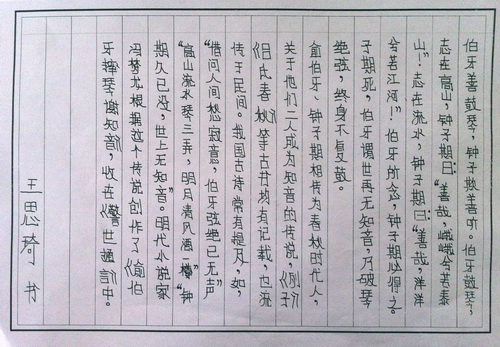 伯牙善鼓琴，钟子欺善听。伯牙鼓琴，
志在高山，钟子期曰：“善哉，峨峨兮若泰
山”！志在流水，钟子期曰：“善哉，洋洋
兮若江河！”伯牙所念，钟子期必得之。
子期死，伯牙谓世再无知音，乃破琴
绝弦，终身不复鼓。
俞伯牙、钟子期相传为春秋时代人，
关于他们二人成为知音的传说，《列子》
《吕氏春秋》等古书均有记载，也流
传于民间。我国古诗常有提及，如，
“借问人间愁寂意，伯牙弦绝已无声”
“高山流水琴三弄，明月清风酒一樽”“钟
期久已没，世上无知音”。明代小说家
冯梦龙根据这个传说创作了《俞伯
牙摔琴谢知音》，收在《警世通言》中。
王思琦书